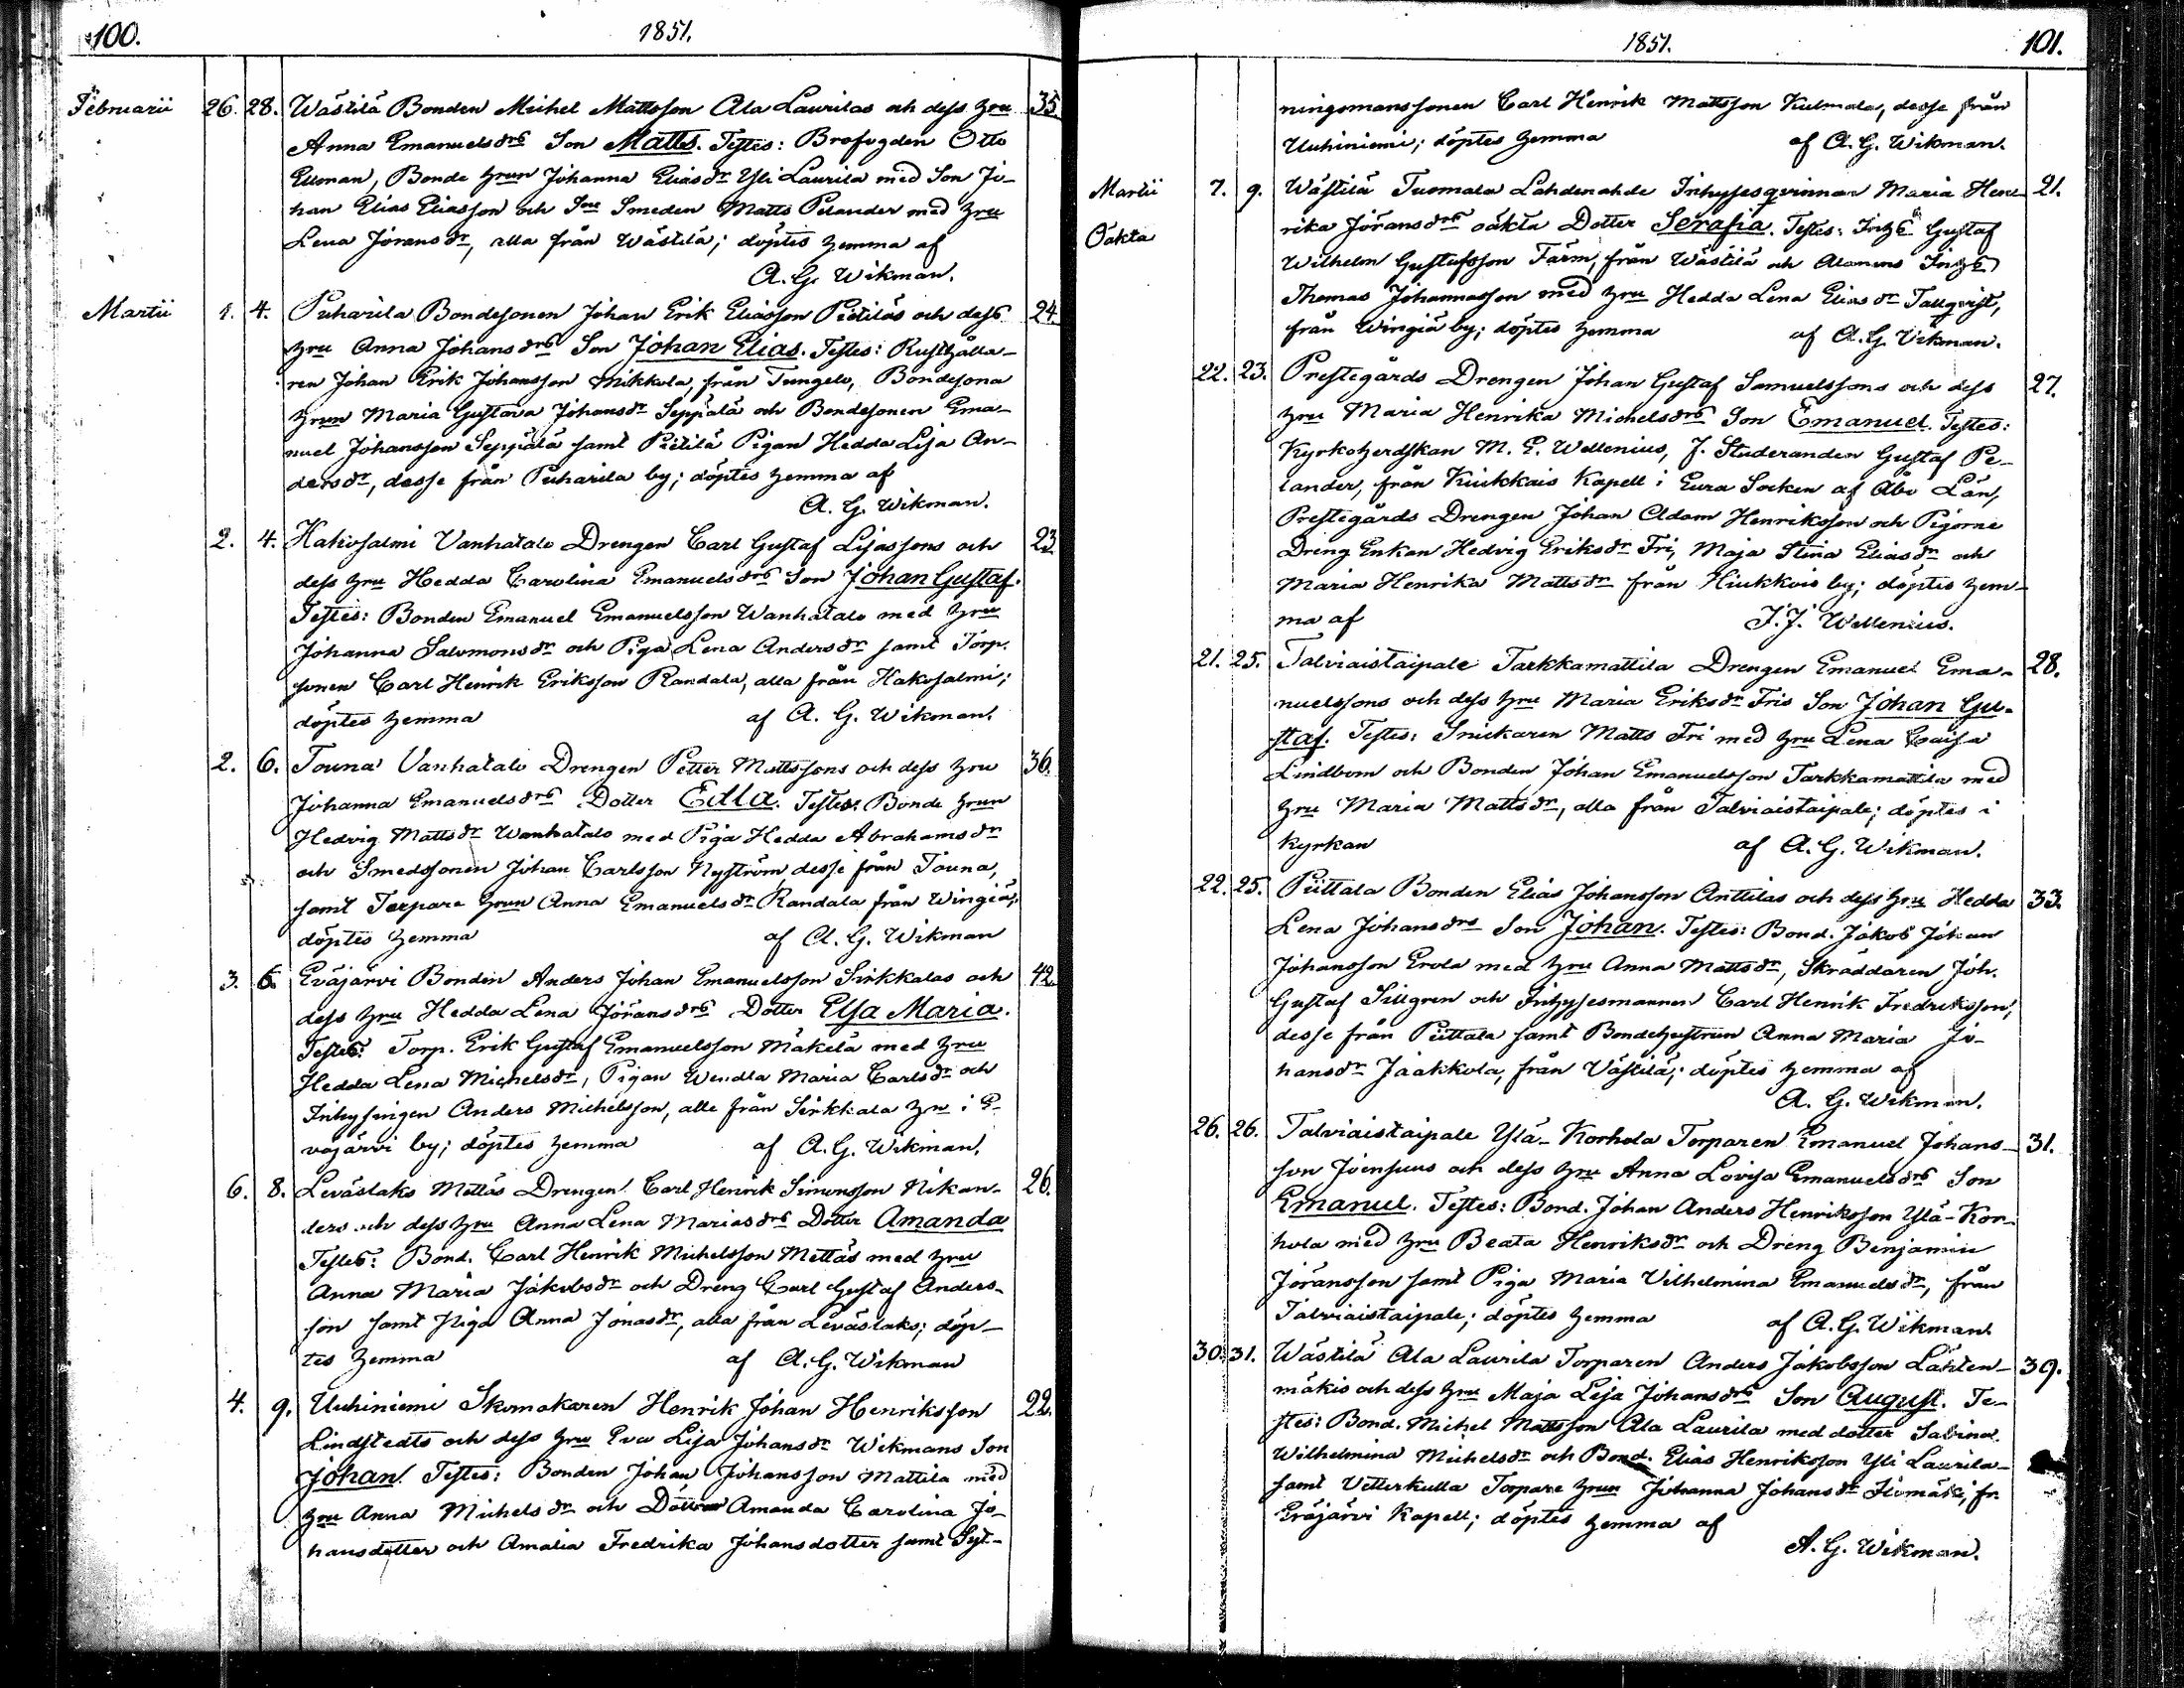 100.
1851.
Februarii 26. 28. Wästilä Bonden Michel Mattsson Ala Laurilas och dess hru 35.
Anna Emanuelsdrs Son Matts. Testes: Brofogden Otto
Ekman, Bonde hrun Johanna Eliasdr Yli Laurila med Son Jo-
han Elias Eliasson och Smeden Matts Pelander med hru
Lena Joransdr, alla från Wästilä; döptes hemma af
A. G. Wikman.
Martii 1. 4. Puharila Bondesonen Johan Erik Eliasson Pietiläs och dess 24.
hru Anna Johansdrs Son Johan Elias. Testes: Rusthålla-
ren Johan Erik Johansson Mikkola, från Tungelo, Bondesona
hrun Maria Gustava Johansdr Seppälä och Bondesonen Ema-
nuel Johansson Seppälä samt Pietilä Pigan Hedda Lisa An-
dersdr, desse från Puharila by; döptes hemma af
A. G. Wikman.
2. 4. Hakosalmi Vanhatalo Drengen Carl Gustaf Lisassons och 23.
dess hru Hedda Carolina Emanuelsdrs Son Johan Gustaf.
Testes: Bonden Emanuel Emanuelsson Wanhatalo med hru
Johanna Salomonsdr och Piga Lena Andersdr samt Torp.
sonen Carl Henrik Eriksson Randala, alla från Hakosalmi;
döptes hemma af A. G. Wikman.
2. 6. Touna Vanhatalo Drengen Petter Mattssons och dess hru 36.
Johanna Emanuelsdrs Dotter Edla. Testes: Bonde hrun
Hedvig Mattsdr Wanhatalo med Piga Hedda Abrahamsdr
och Smedssonen Johan Carlsson Nyström, desse från Touna,
samt Torpare hrun Anna Emanuelsdr Randala från Wingiä;
döptes hemma af A. G. Wikman
3. 6. Eväjärvi Bonden Anders Johan Emanuelsson Sirkkalas och 42.
dess hru Hedda Lena Jöransdrs Dotter Elsa Maria.
Testes: Torp. Erik Gustaf Emanuelsson Mäkelä med hru
Hedda Lena Michelsdr, Pigan Wendla Maria Carlsdr och
Inhysingen Anders Michelsson, alle från Sirkkala hn i E-
väjärvi by; döptes hemma af A. G. Wikman.
6. 8. Leväslaks Mettäs Drengen Carl Henrik Simonsson Nikan- 26.
ders och dess hru Anna Lena Mariasdrs Dotter Amanda
Testes: Bond. Carl Henrik Michelsson Mettäs med hru
Anna Maria Jakobsdr och Dreng Carl Gustaf Anders-
son samt Piga Anna Jonasdr, alla från Leväslaks; döp-
tes hemma af A. G. Wikman
4. 9. Uuhiniemi Skomakaren Henrik Johan Henriksson 22.
Lindstedts och dess hru Eva Lisa Johansdr Wikmans Son
Johan. Testes: Bonden Johan Johansson Mattila med
hru Anna Michelsdr och Döttrar Amanda Carolina Jo-
hansdotter och Amalia Fredrika Johansdotter samt Syt-
1851.
101.
ningsmanssonen Carl Henrik Mattsson Kulmala, desse från
Uuhiniemi; döptes hemma af A. G. Wikman.
Martii 7. 9. Wästilä Tuomala Lahdenahde Inhysesqvinnan Maria Hen- 21.
Oäkta rika Jöransdrs oäkta Dotter Serafia. Testes: Inhs Gustaf
Wilhelm Gustafsson Färm, från Wästilä och Inhs
Thomas Johannasson med hru Hedda Lena Eliasdr Tallqvist,
från Wingiä by; döptes hemma af A. G. Wikman.
22. 23. Prestegårds Drengen Johan Gustaf Samuelssons och dess 27.
hru Maria Henrika Michelsdrs Son Emanuel. Testes:
Kyrkoherdskan M. E. Wellenius, f. Studeranden Gustaf Pe-
lander, från Kiukkais Kapell i Eura Socken af Åbo Län,
Prestegårds Drengen Johan Adam Henriksson och Pigorne
Dreng Enkan Hedvig Eriksdr Fri, Maja Stina Eliasdr och
Maria Henrika Mattsdr från Hiukkois by; döptes hem-
ma af J. J. Wellenius.
21. 25. Talviaistaipale Tarkkamattila Drengen Emanuel Ema- 28.
nuelssons och dess hru Maria Eriksdr Fris Son Johan Gu-
staf. Testes: Snickaren Matts Fri med hru Lena Caisa
Lindbom och Bonden Johan Emanuelsson Tarkkamattila med
hru Maria Mattsdr, alla från Talviaistaipale; döptes i
kyrkan af A. G. Wikman.
22. 25. Piittala Bonden Elias Johansson Anttilas och dess hru Hedda 33.
Lena Johansdrs Son Johan. Testes: Bond. Jakob Johan
Johansson Erola med hru Anna Mattsdr, Skräddaren Joh.
Gustaf Sillgren och Inhysesmannen Carl Henrik Fredriksson,
desse från Piittala samt Bondehustrun Anna Maria Jo-
hansdr Jaakkola, från Västilä; döptes hemma af
A. G. Wikman.
26. 26. Talviaistaipale Ylä-Korhola Torparen Emanuel Johans- 31.
son Joensuus och dess hru Anna Lovisa Emanuelsdrs Son
Emanuel. Testes: Bond. Johan Anders Henriksson Ylä-Kor-
hola med hru Beata Henriksdr och Dreng Benjamin
Jöransson samt Piga Maria Vilhelmina Emanuelsdr, från
Talviaistaipale; döptes hemma af A. G. Wikman.
30. 31. Wästilä Ala Laurila Torparen Anders Jakobsson Lähten- 39.
mäkis och dess hru Maja Lisa Johansdrs Son August. Te-
stes: Bond. Michel Mattsson Ala Laurila med dotter Sabina
Wilhelmina Michelsdr och Bond. Elias Henriksson Yli Laurila
samt Vitterkulla Torpare hrun Johanna Johansdr fr.
Eräjärvi Kapell; döptes hemma af
A. G. Wikman.